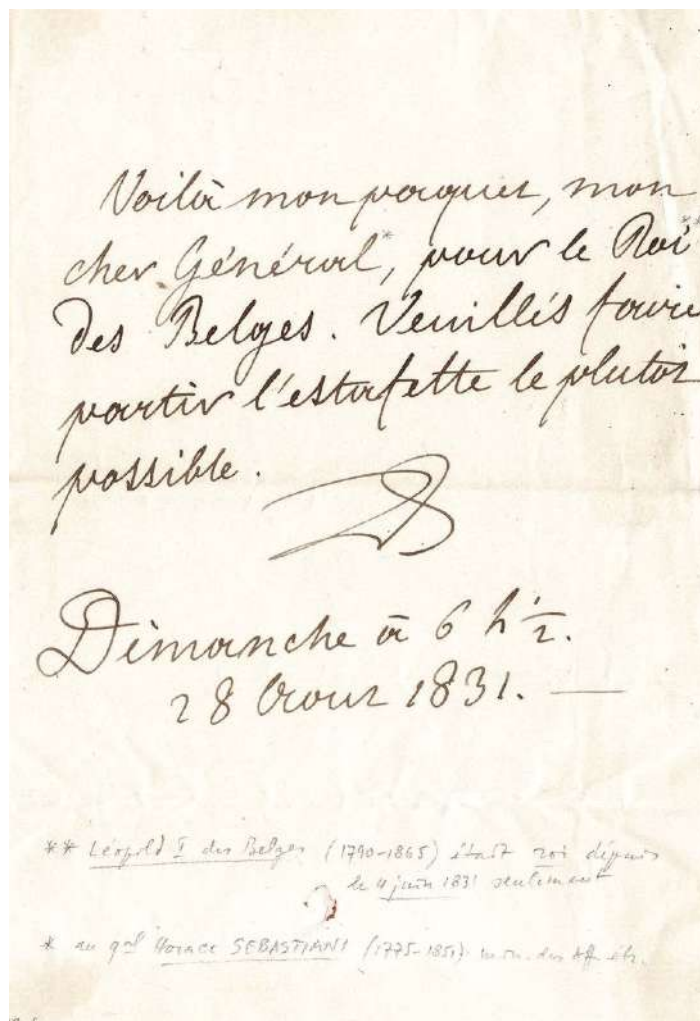 Voilà mon paquet, mon
cher Général*, pour le Roi**
des Belges. Veuillés faire
partir l'estafette le plutot
possible.
Dimanche à 6 h 1/2.
28 Aout 1831. —
** Léopold I des Belges (1790-1865) était roi depuis
le 4 juin 1831 seulement
* au gal Horace SEBASTIANI (1775-1851) min. des Aff. étr.